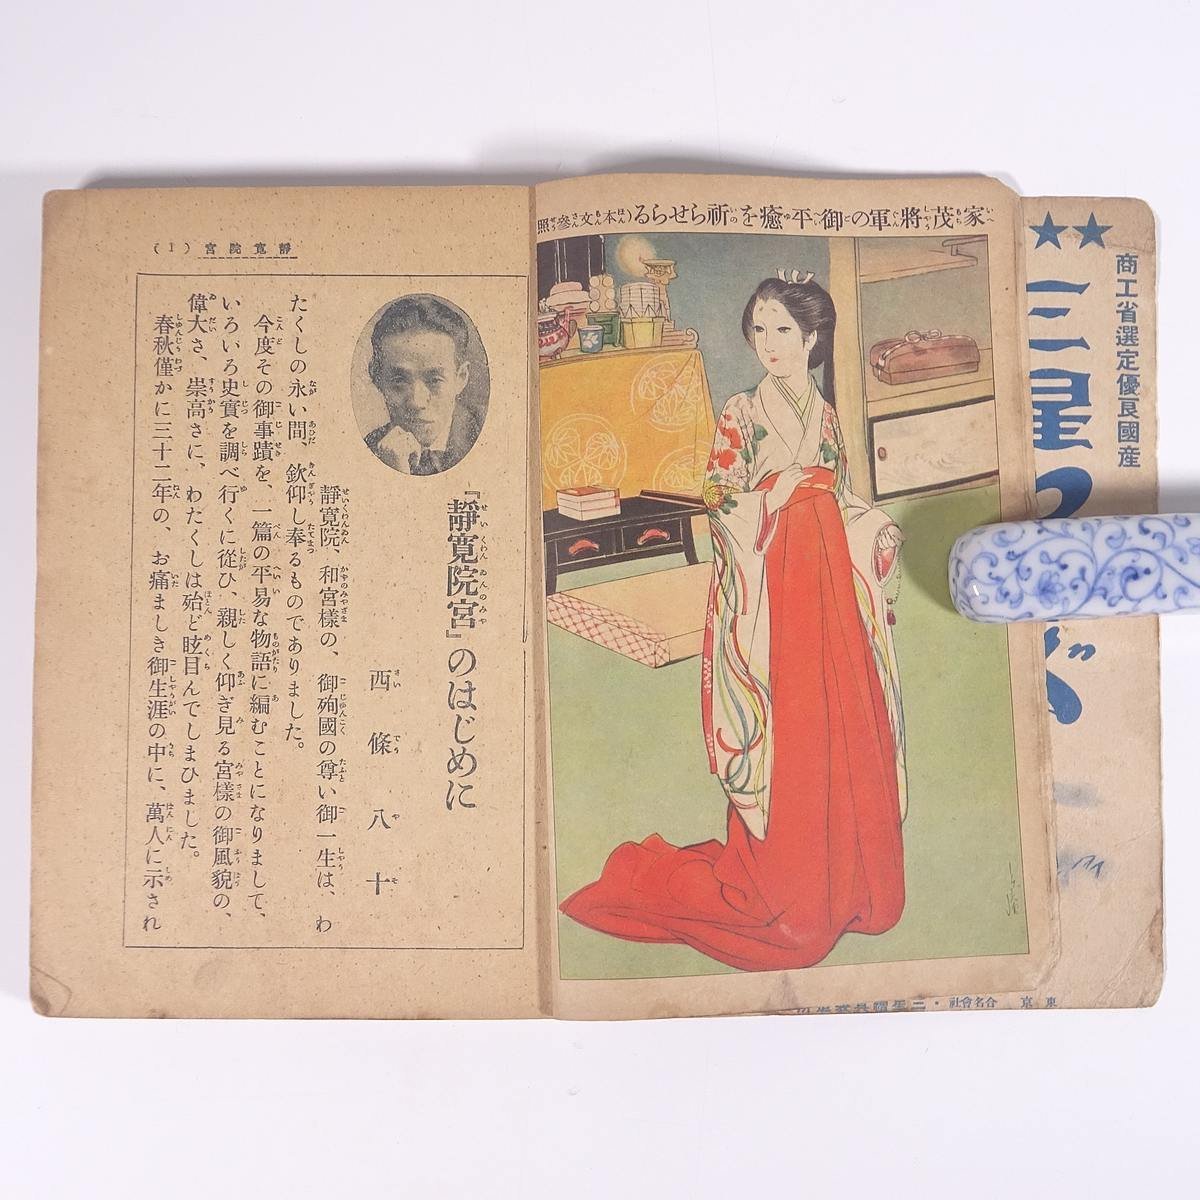 家茂將軍の御平癒を祈らせらる(本文參照
商工省選定優良國産
三星
東京 合名會社
靜寬院宮 (1)
『靜寬院宮』のはじめに
西條八十
靜寬院、和宮樣の、御殉國の尊い御一生は、わ
たくしの永い間、欽仰し奉るものでありました。
今度その御事蹟を、一篇の平易な物語に編むことになりまして、
いろいろ史實を調べ行くに從ひ、親しく仰ぎ見る宮樣の御風貌の、
偉大さ、崇高さに、わたくしは殆ど眩目んでしまひました。
春秋僅かに三十二年の、お痛ましき御生涯の中に、萬人に示され